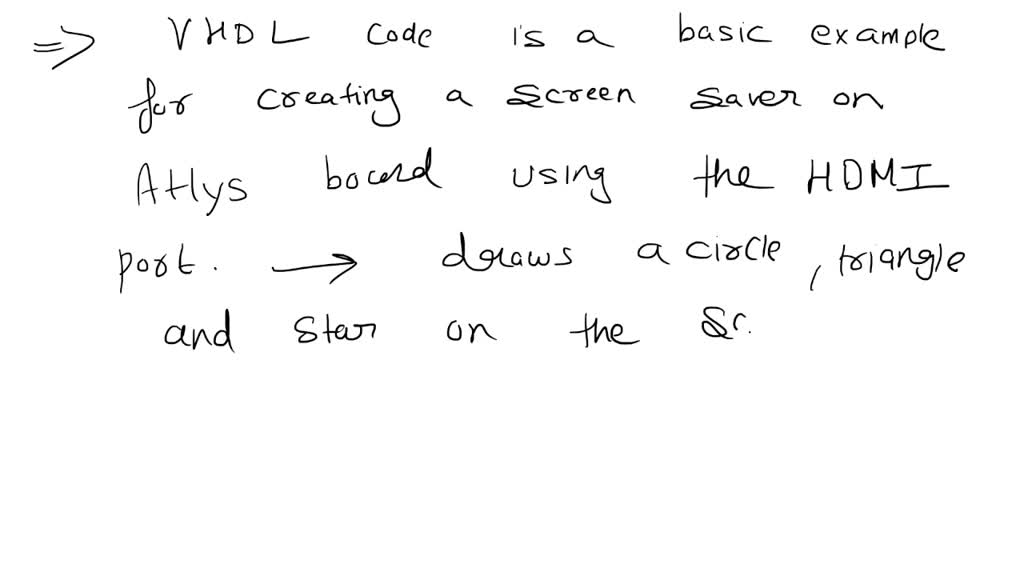 => VHDL code is a basic example
for creating a screen saver on
Atlys board using the HDMI
port. → draws a circle, triangle
and star on the sc.